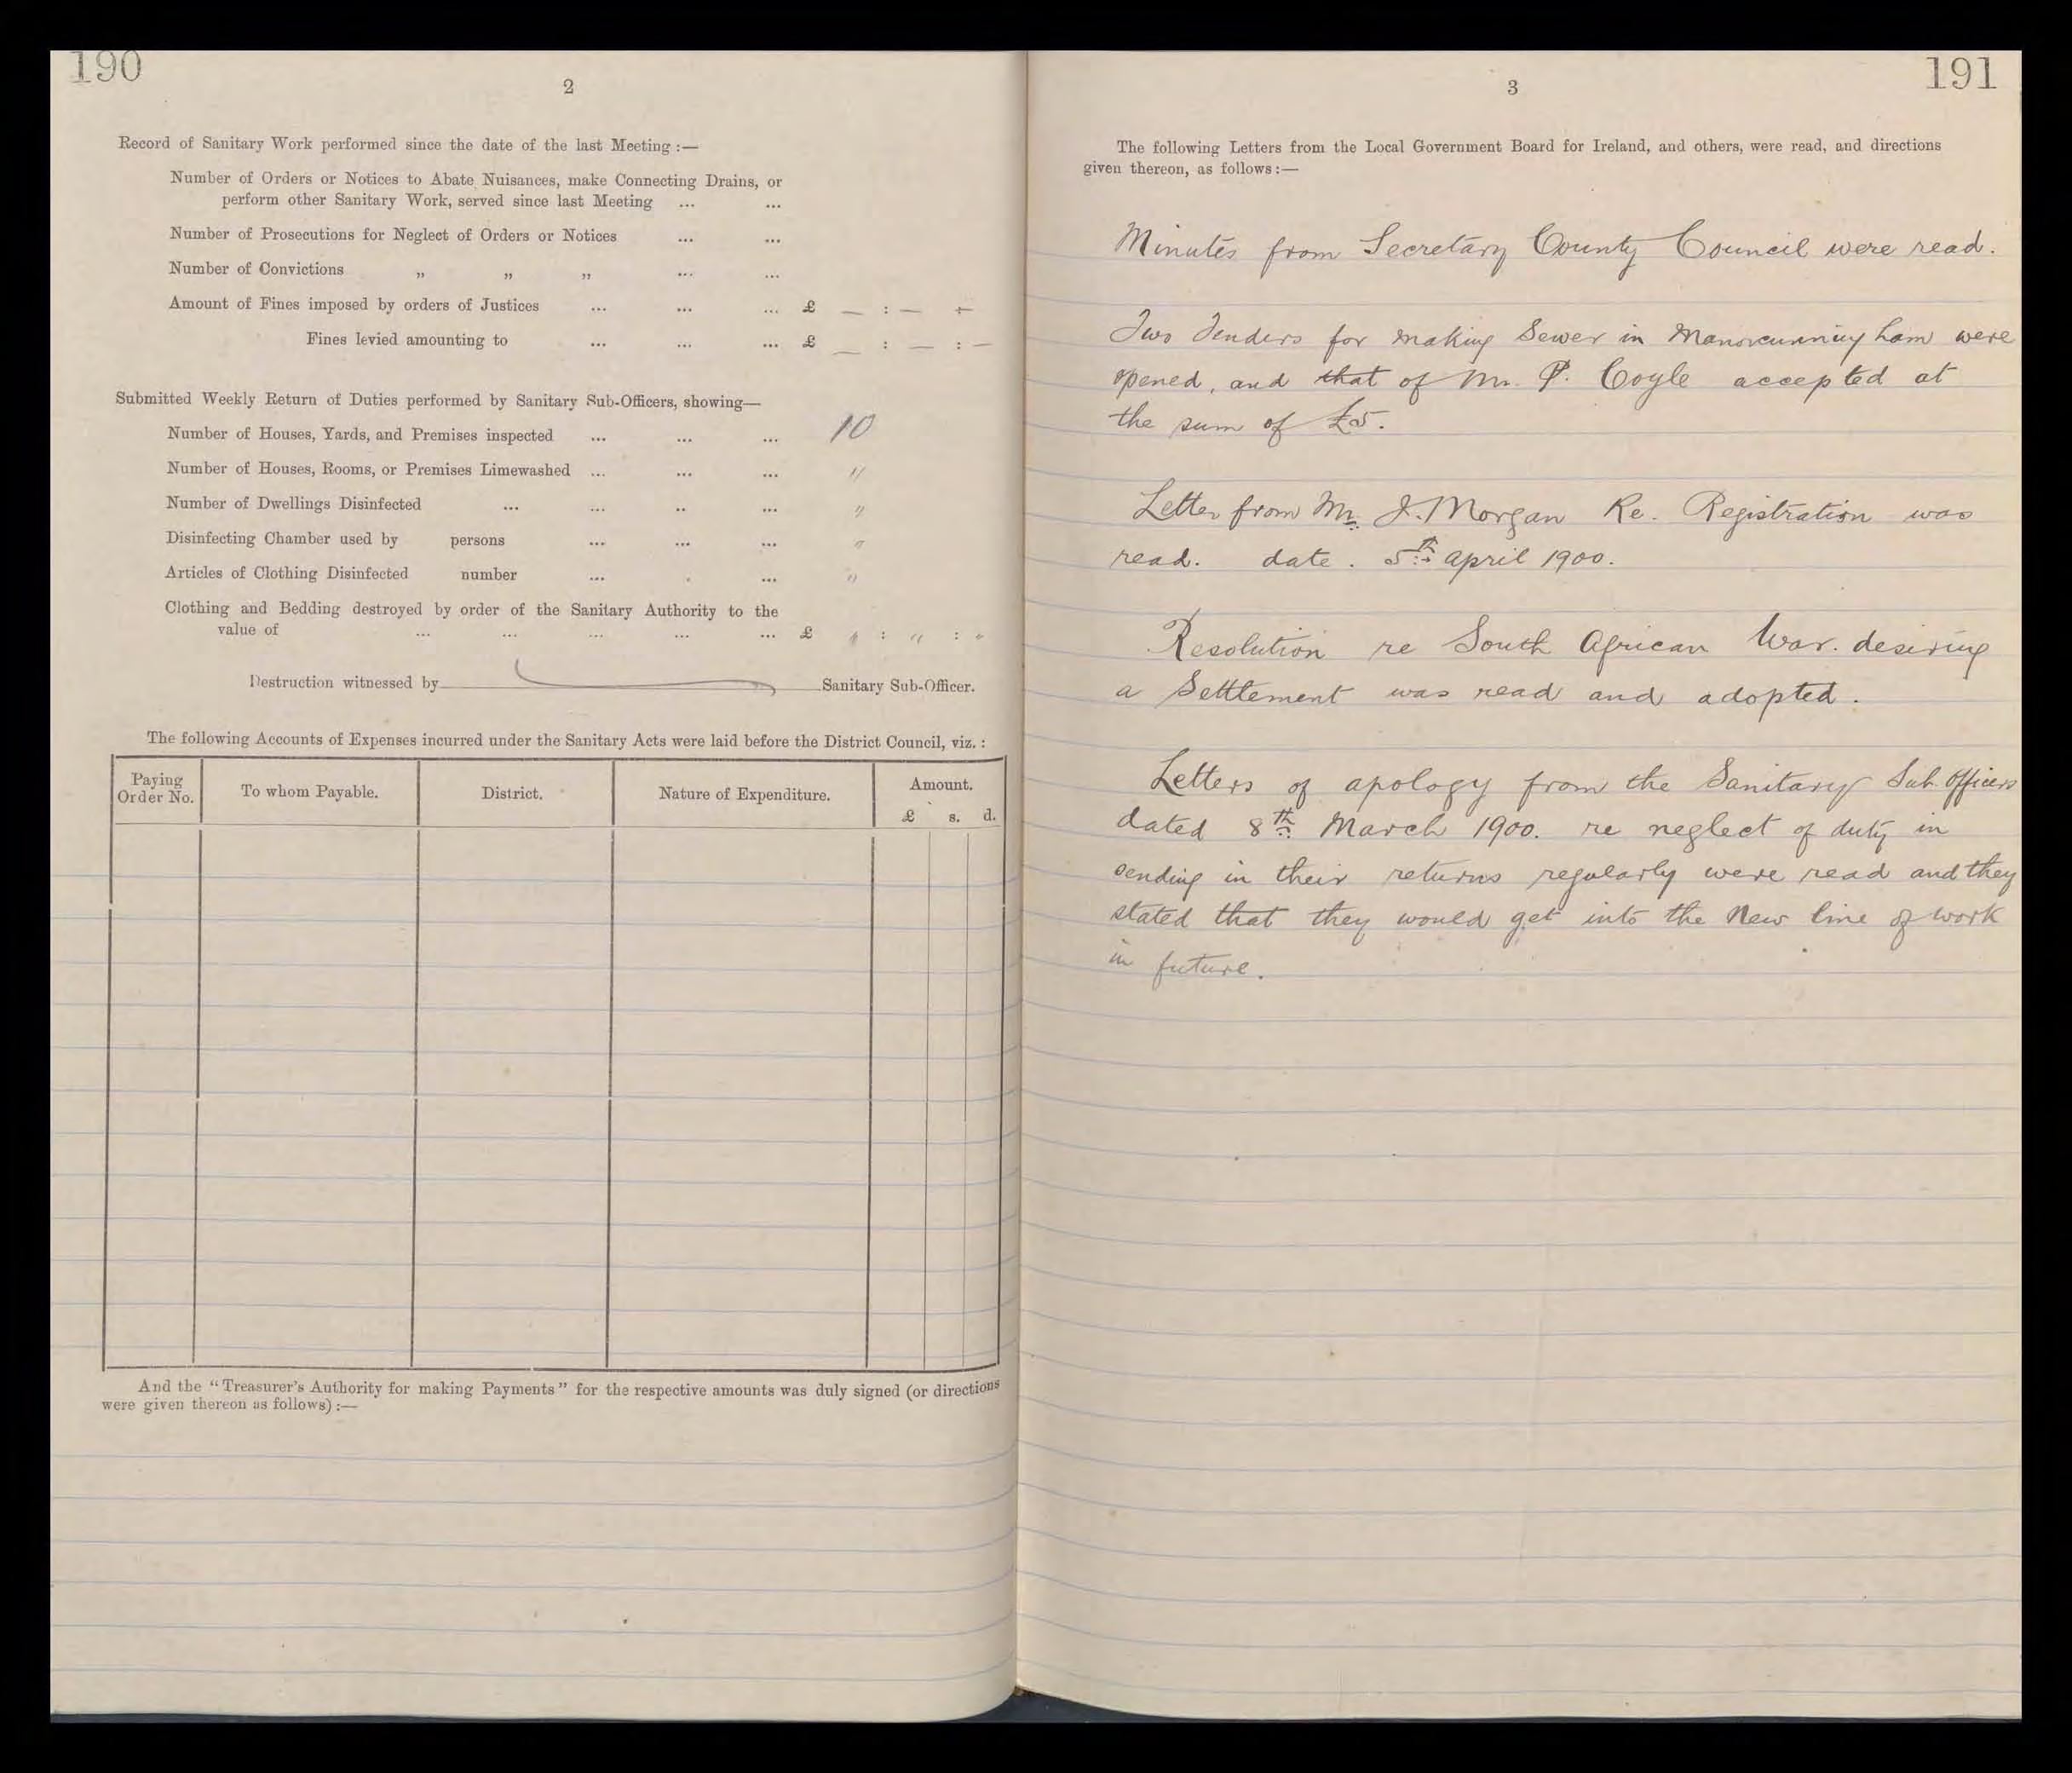 190
2
Record of Sanitary Work performed since the date of the last Meeting :—
Number of Orders or Notices to Abate Nuisances, make Connecting Drains, or
perform other Sanitary Work, served since last Meeting ... ...
Number of Prosecutions for Neglect of Orders or Notices ... ...
Number of Convictions „ „ „ ... ...
Amount of Fines imposed by orders of Justices ... ... ... £ — : — —
Fines levied amounting to ... ... ... £ — : — : —
Submitted Weekly Return of Duties performed by Sanitary Sub-Officers, showing—
Number of Houses, Yards, and Premises inspected ... ... ... 10
Number of Houses, Rooms, or Premises Limewashed ... ... ... "
Number of Dwellings Disinfected ... ... .. ... "
Disinfecting Chamber used by persons ... ... ... "
Articles of Clothing Disinfected number ... . ... "
Clothing and Bedding destroyed by order of the Sanitary Authority to the
value of ... ... ... ... ... £ " : " : "
Destruction witnessed by Sanitary Sub-Officer.
The following Accounts of Expenses incurred under the Sanitary Acts were laid before the District Council, viz. :
Paying Order No. To whom Payable. District. Nature of Expenditure. Amount.
£ s. d.
And the "Treasurer's Authority for making Payments" for the respective amounts was duly signed (or directions
were given thereon as follows) :—
191
3
The following Letters from the Local Government Board for Ireland, and others, were read, and directions
given thereon, as follows :—
Minutes from Secretary County Council were read.
Two Tenders for making Sewer in Manorcunningham were
opened, and that of Mr. P. Coyle accepted at
the sum of £5.
Letter from Mr. J. Morgan Re. Registration was
read. date. 5th April 1900.
Resolution re South African War. desiring
a Settlement was read and adopted.
Letters of apology from the Sanitary Sub. Officers
dated 8th March 1900. re neglect of duty in
sending in their returns regularly were read and they
stated that they would get into the New line of work
in future.